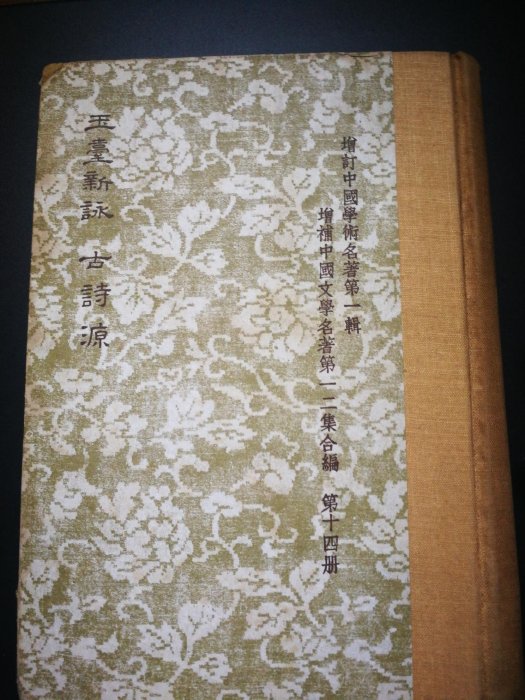 增訂中國學術名著第一輯
增補中國文學名著第一二集合編 第十四册
玉臺新詠 古詩源